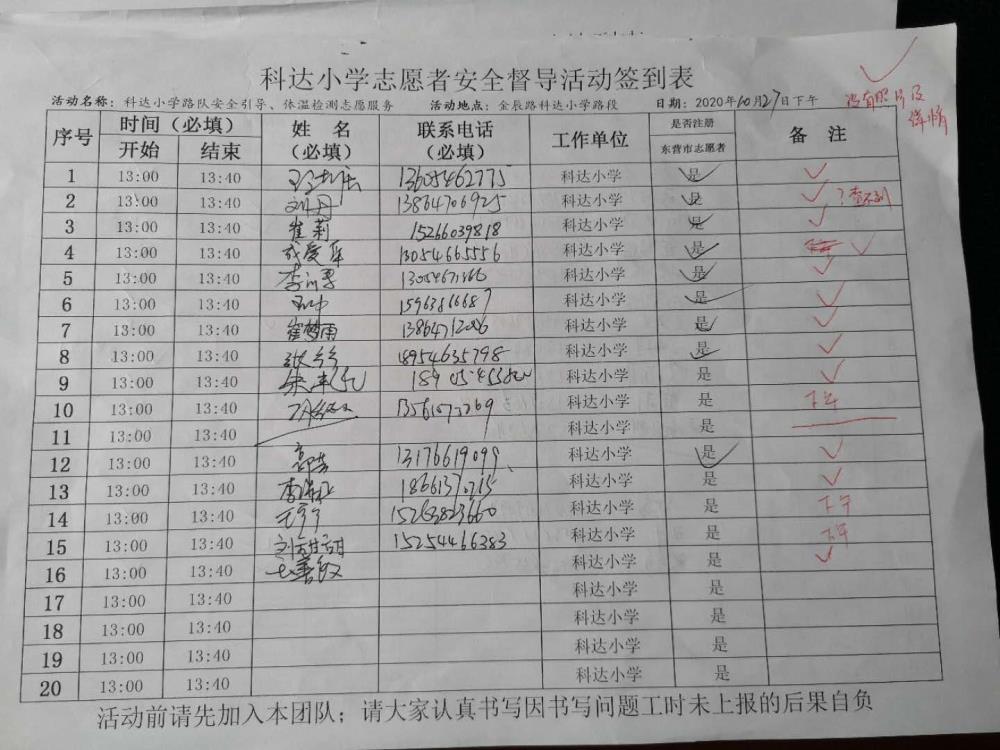 科达小学志愿者安全督导活动签到表
活动名称：科达小学路队安全引导、体温检测志愿服务 活动地点：金辰路科达小学路段 日期：2020年10月27日下午
没有照片及
详情
序号 时间（必填） 姓 名 联系电话 工作单位 是否注册 备 注
开始 结束 （必填） （必填） 东营市志愿者
1 13:00 13:40 13605462775 科达小学 是 ✓
2 13:00 13:40 刘丹 13864706925 科达小学 是 ✓ ?查不到
3 13:00 13:40 崔莉 15266039818 科达小学 是 ✓
4 13:00 13:40 13054665556 科达小学 是 ✓
5 13:00 13:40 科达小学 是 ✓
6 13:00 13:40 科达小学 是 ✓
7 13:00 13:40 崔梦雨 科达小学 是 ✓
8 13:00 13:40 18954635798 科达小学 是 ✓
9 13:00 13:40 科达小学 是 ✓
10 13:00 13:40 科达小学 是 下午
11 13:00 13:40 科达小学 是
12 13:00 13:40 13176619099 科达小学 是 ✓
13 13:00 13:40 科达小学 是 ✓
14 13:00 13:40 15263823660 科达小学 是 下午
15 13:00 13:40 刘甜甜 15254466383 科达小学 是 下午
16 13:00 13:40 科达小学 是 ✓
17 13:00 13:40 科达小学 是
18 13:00 13:40 科达小学 是
19 13:00 13:40 科达小学 是
20 13:00 13:40 科达小学 是
活动前请先加入本团队；请大家认真书写因书写问题工时未上报的后果自负